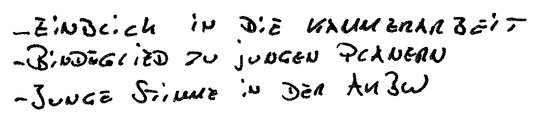 - EINBLICK IN DIE KAMMERARBEIT
- BINDEGLIED ZU JUNGEN PLANERN
- JUNGE STIMME IN DER AKBW